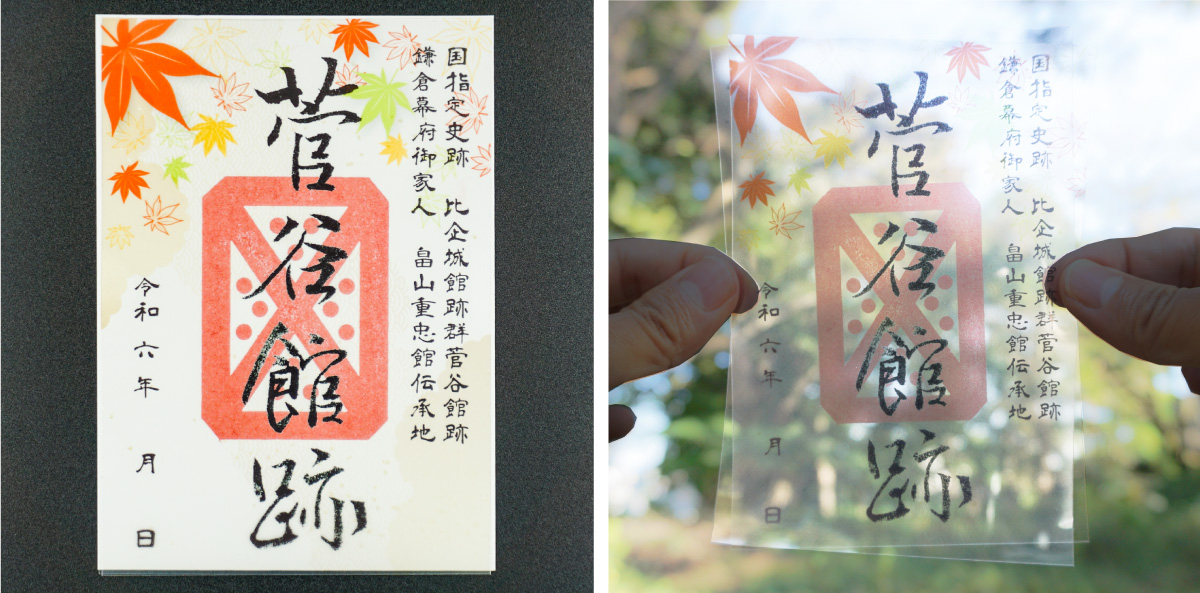 国指定史跡 比企城館跡群菅谷館跡
鎌倉幕府御家人 畠山重忠館伝承地
菅谷館跡
令和六年 月 日
国指定史跡 比企城館跡群菅谷館跡
鎌倉幕府御家人 畠山重忠館伝承地
菅谷館跡
令和六年 月 日